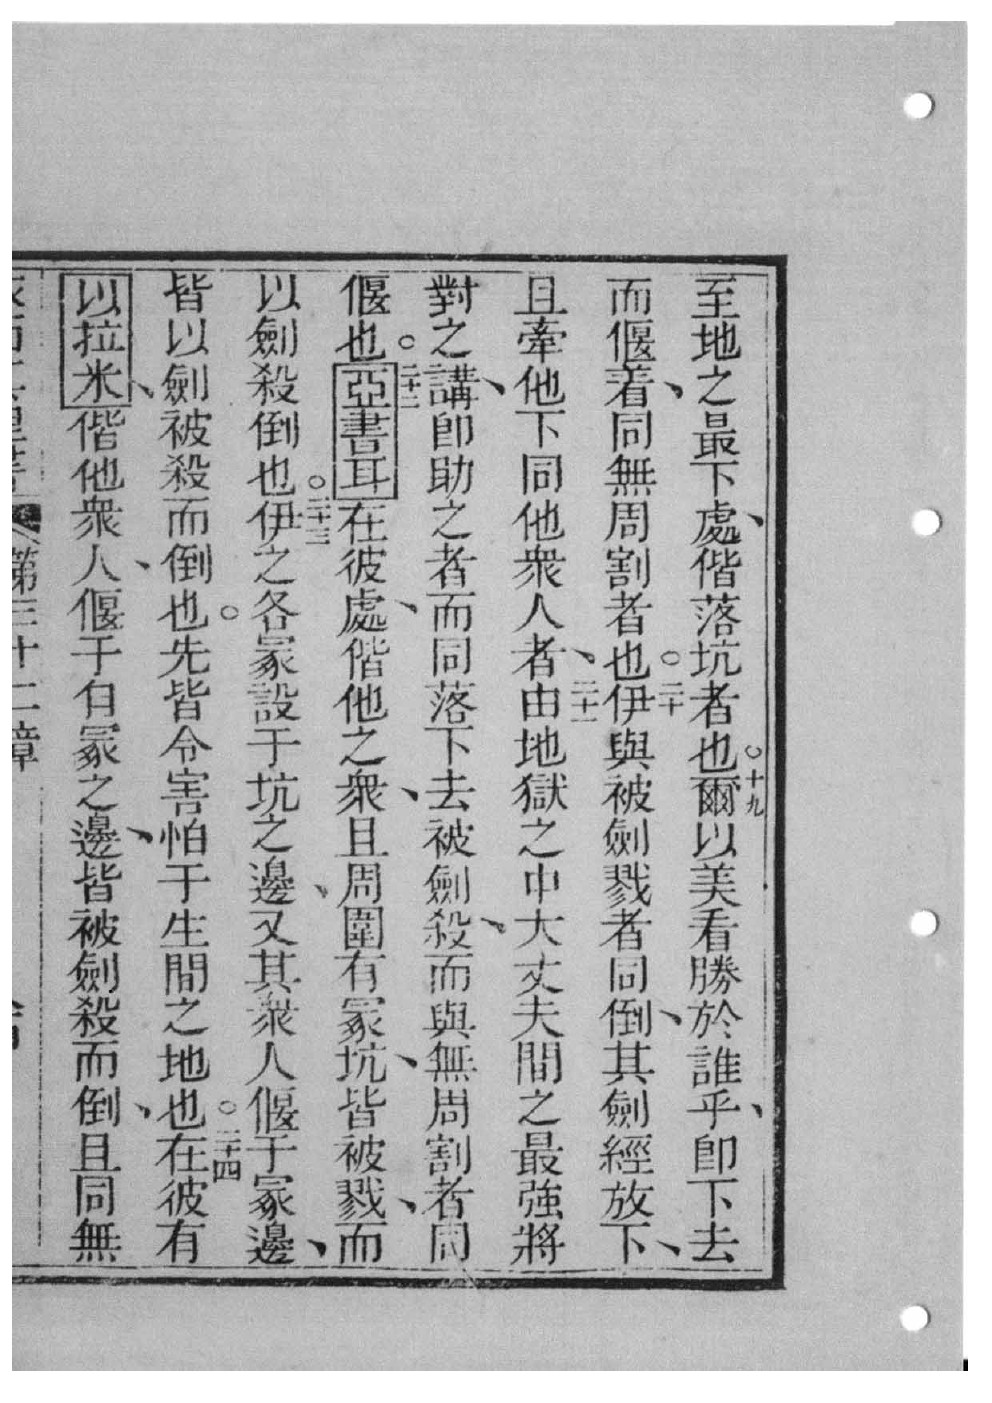 至地之最下處、偕落坑者也。十九爾以美看勝於誰乎、卽下去
而偃着、同無周割者也。二十伊與被劍戮者同倒、其劍經放下、
且牽他下同他衆人者、二十一由地獄之中大丈夫間之最強將
對之講、卽助之者而同落下去被劍殺、而與無周割者同
偃也。二十二亞書耳在彼處、偕他之衆、且周圍有冢坑、皆被戮、而
以劍殺倒也。二十三伊之各冢設于坑之邊、又其衆人偃于冢邊、
皆以劍被殺而倒也。先皆令害怕于生間之地也。二十四在彼有
以拉米、偕他衆人、偃于有冢之邊、皆被劍殺而倒、且同無
第三十二章